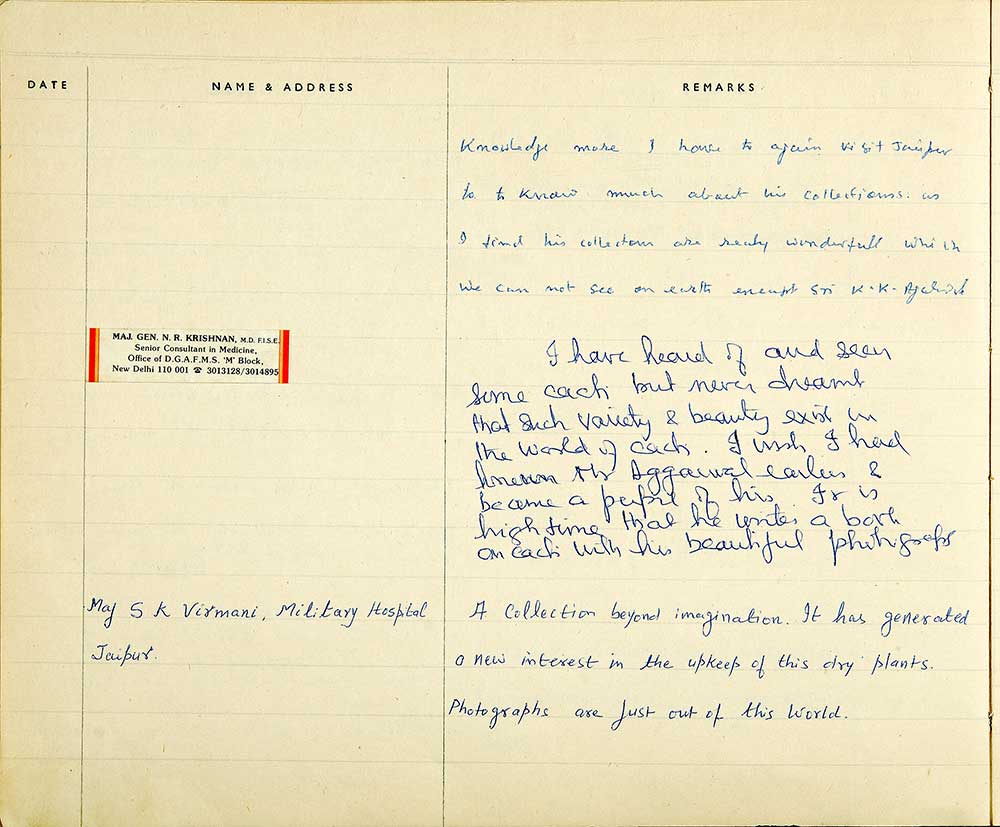 DATE
NAME & ADDRESS
REMARKS
Knowledge more I have to again visit Jaipur
to to know much about his collections. as
I find his collectons are realy wonderfull which
we can not see on earth except Sri K.K.
MAJ. GEN. N. R. KRISHNAN, M.D. F.I.S.E.
Senior Consultant in Medicine,
Office of D.G.A.F.M.S. 'M' Block,
New Delhi 110 001 ☎ 3013128/3014895
I have heard of and seen
some cacti but never dreamt
that such variety & beauty exist in
the world of cacti. I wish I had
known Mr Aggarwal earlier &
become a pupil of his. It is
high time that he writes a book
on cacti with his beautiful photographs
Maj S K Virmani, Military Hospital
Jaipur.
A Collection beyond imagination. It has generated
a new interest in the upkeep of this dry plants.
Photographs are just out of this World.